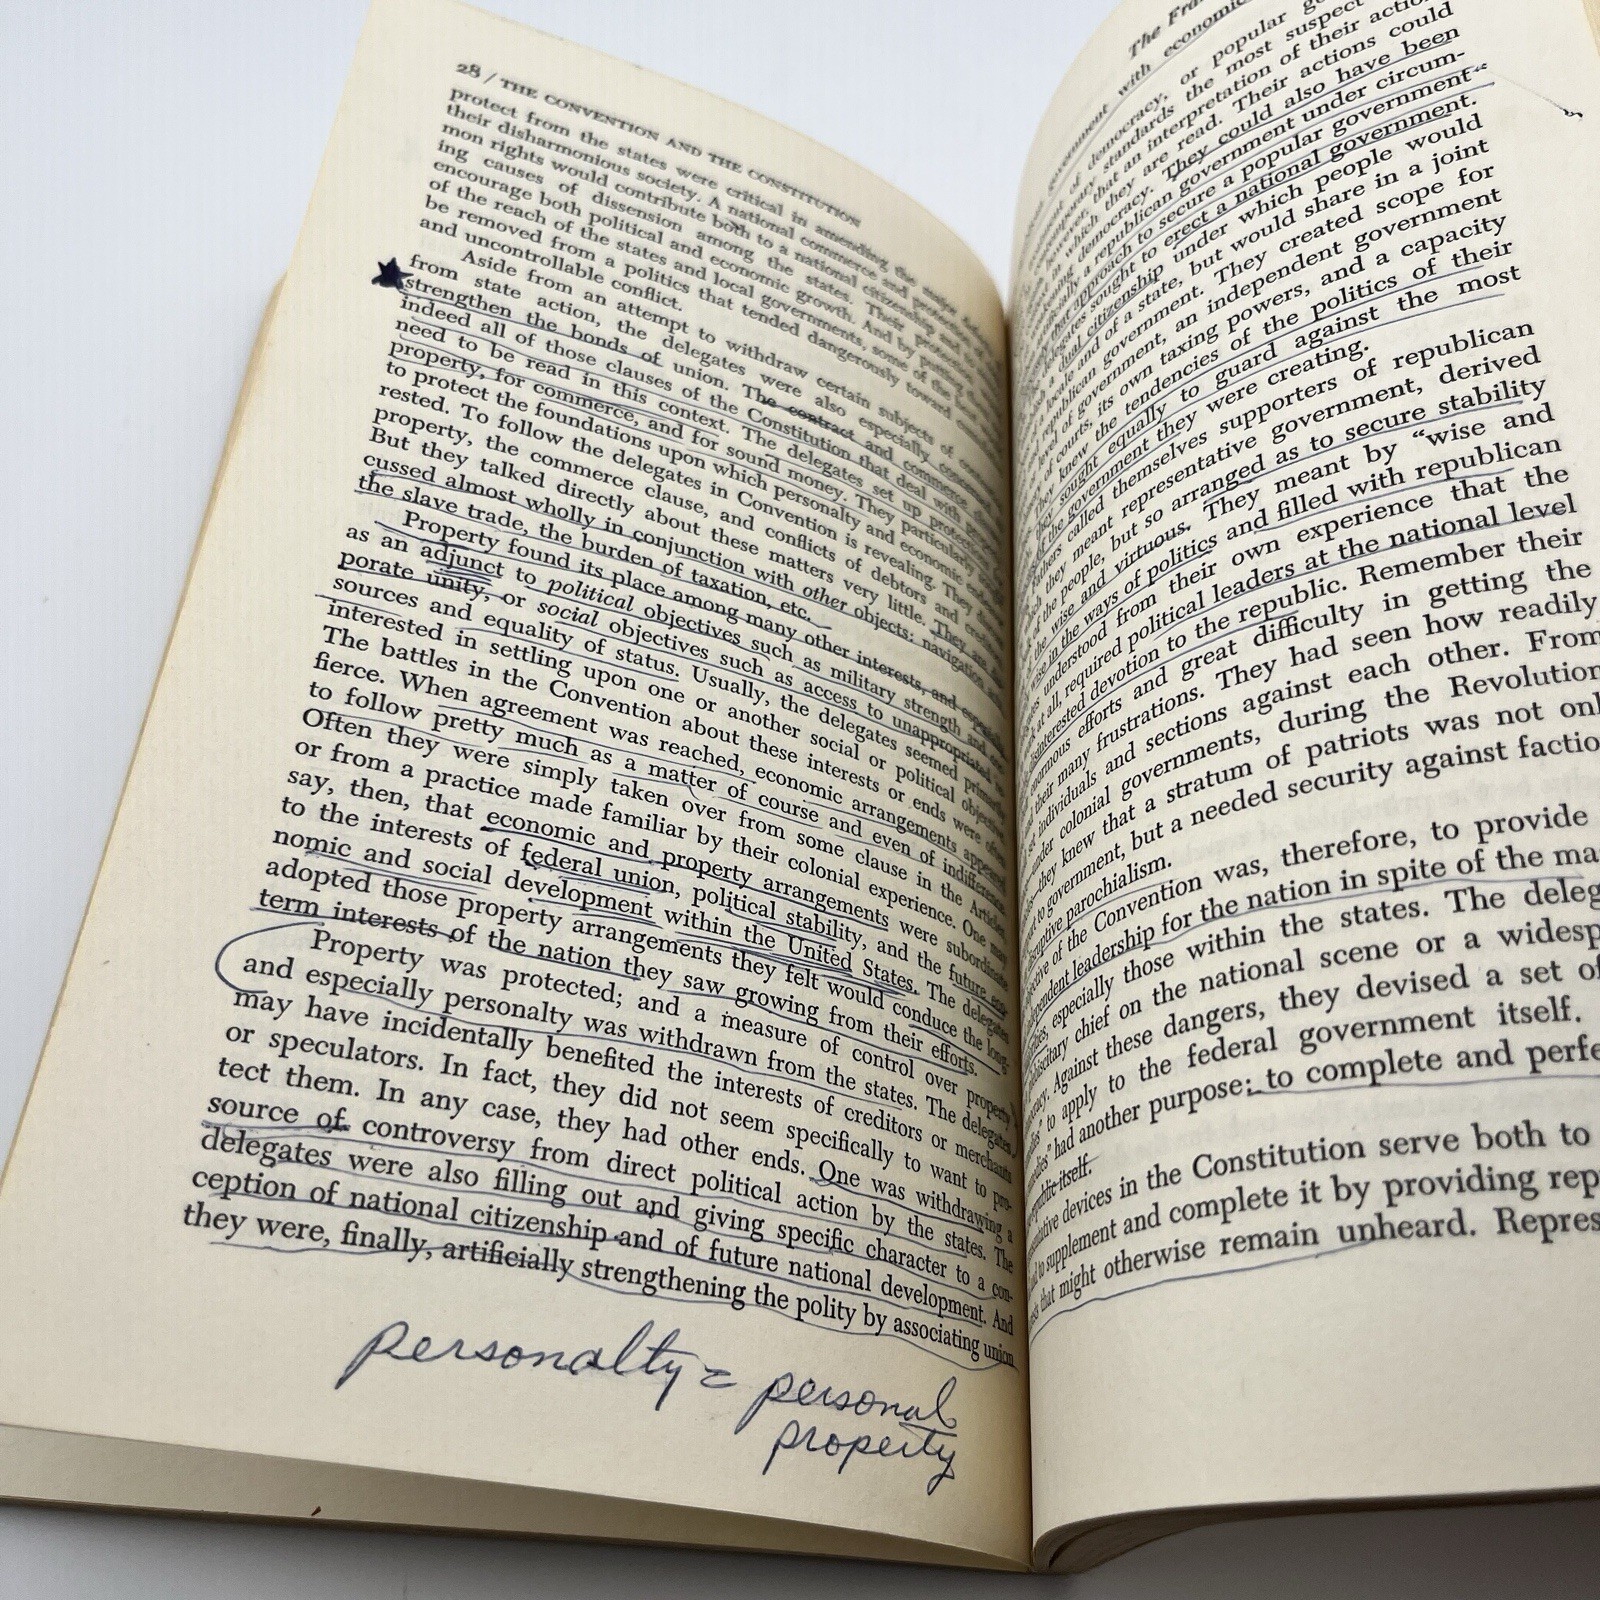 28 / THE CONVENTION AND THE CONSTITUTION
protect from the states were critical in amending the
their disharmonious society. A national commerce and
mon rights would contribute both to a national citizenship
ing causes of dissension among the states. Their
encourage both political and economic growth. And by putting
of the reach of the states and local governments, some of the
be removed from a politics that tended dangerously toward
and uncontrollable conflict.
Aside from an attempt to withdraw certain subjects of
from state action, the delegates were also especially
strengthen the bonds of union. The contract and commerce
indeed all of those clauses of the Constitution that deal with
need to be read in this context. The delegates set up
property, for commerce, and for sound money. They particularly
to protect the foundations upon which personalty and economic
rested. To follow the delegates in Convention is revealing. They
property, the commerce clause, and conflicts of debtors and
But they talked directly about these matters very little. They
cussed almost wholly in conjunction with other objects: navigation
the slave trade, the burden of taxation, etc.
Property found its place among many other interests, and especially
as an adjunct to political objectives such as military strength and
porate unity, or social objectives such as access to unappropriated
sources and equality of status. Usually, the delegates seemed primarily
interested in settling upon one or another social or political objective.
The battles in the Convention about these interests or ends were often
fierce. When agreement was reached, economic arrangements appeared
to follow pretty much as a matter of course and even of indifference.
Often they were simply taken over from some clause in the Articles
or from a practice made familiar by their colonial experience. One may
say, then, that economic and property arrangements were subordinate
to the interests of federal union, political stability, and the future eco-
nomic and social development within the United States. The delegates
adopted those property arrangements they felt would conduce the long-
term interests of the nation they saw growing from their efforts.
Property was protected; and a measure of control over property
and especially personalty was withdrawn from the states. The delegates
may have incidentally benefited the interests of creditors or merchants
or speculators. In fact, they did not seem specifically to want to pro-
tect them. In any case, they had other ends. One was withdrawing a
source of controversy from direct political action by the states. The
delegates were also filling out and giving specific character to a con-
ception of national citizenship and of future national development. And
they were, finally, artificially strengthening the polity by associating union
personalty = personal
property
The
government with economic
of democracy, or popular
standards the most suspect
that an interpretation of their
in which they are read. Their actions could
democracy. They could also have been
a republican government under circum-
their approach to secure a popular government
sought to erect a national government.
dual citizenship under which people would
locale and of a state, but would share in a joint
republican government. They created scope for
level of government, an independent government
of courts, its own taxing powers, and a capacity
They knew the tendencies of the politics of their
they sought equally to guard against the most
of the government they were creating.
fathers called themselves supporters of republican
which they meant representative government, derived
of the people, but so arranged as to secure stability
the wise and virtuous. They meant by “wise and
wise in the ways of politics and filled with republican
understood from their own experience that the
at all, required political leaders at the national level
disinterested devotion to the republic. Remember their
enormous efforts and great difficulty in getting the
their many frustrations. They had seen how readily
individuals and sections against each other. From
under colonial governments, during the Revolution
they knew that a stratum of patriots was not only
to government, but a needed security against
disruptive parochialism.
objective of the Convention was, therefore, to provide
independent leadership for the nation in spite of the
especially those within the states. The
chief on the national scene or a
Against these dangers, they devised a set of
to apply to the federal government itself.
had another purpose: to complete and
republic itself.
devices in the Constitution serve both to
to supplement and complete it by providing
that might otherwise remain unheard.